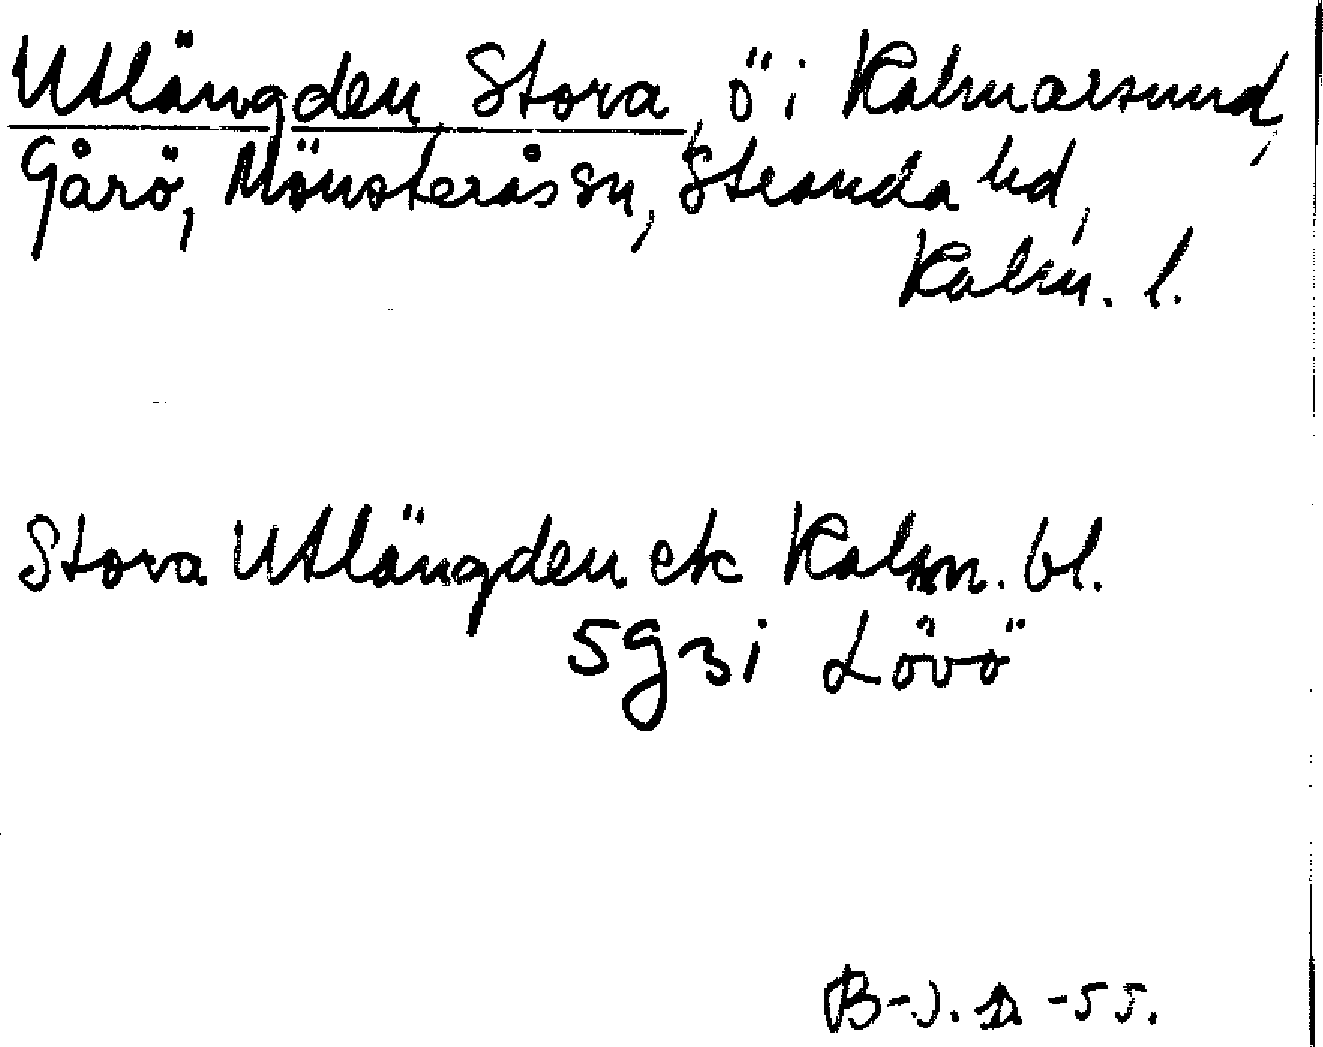 Utlängden, Stora, ö i Kalmarsund,
Gårö, Mönsterås sn, Stranda hd,
Kalm. l.
Stora Utlängden ek Kalm. bl.
5g3i Lövö
B-J. -55.